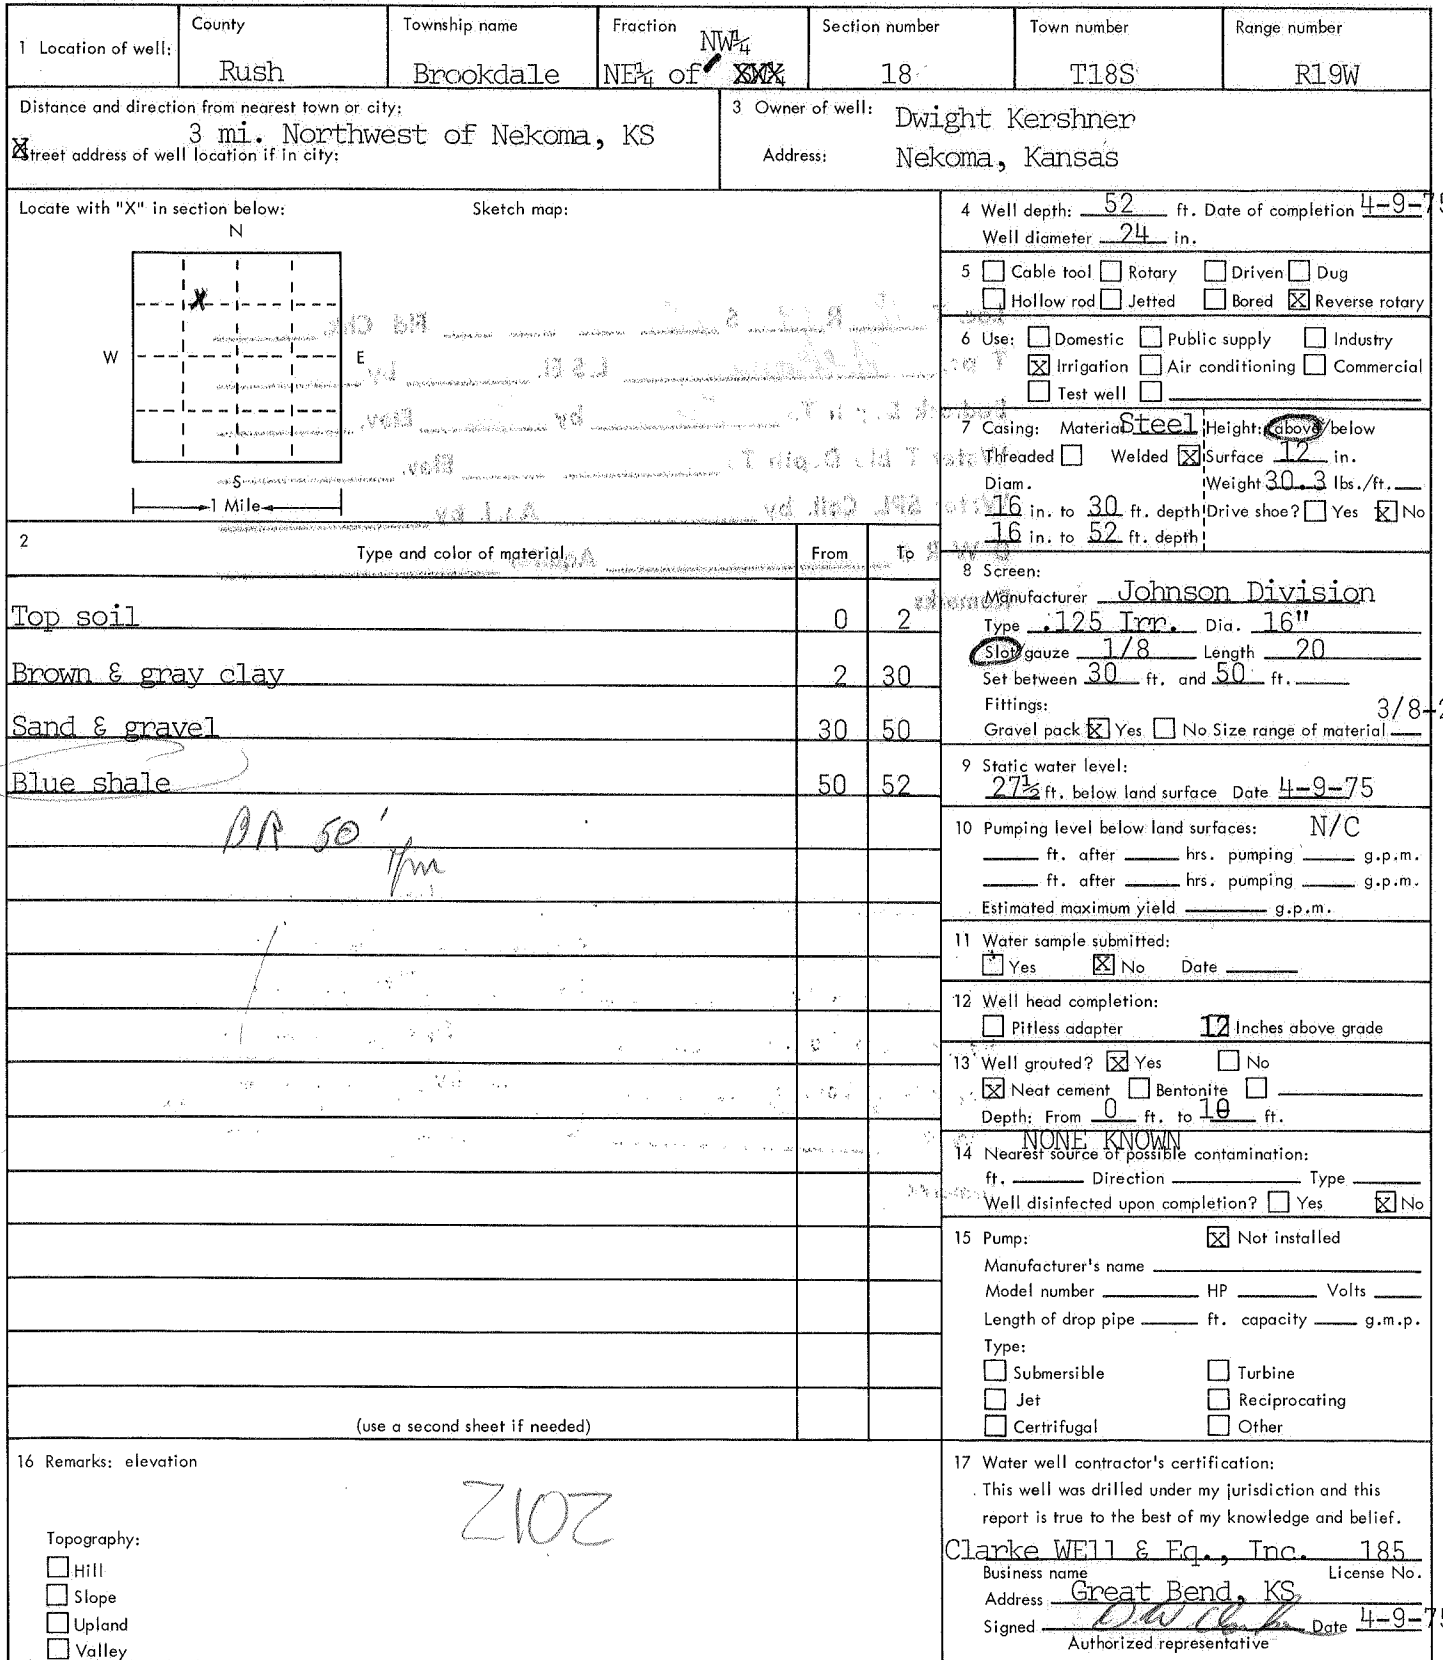 1 Location of well:
County
Rush
Township name
Brookdale
Fraction
NW¼
NE¼ of
Section number
18
Town number
T18S
Range number
R19W
Distance and direction from nearest town or city:
3 mi. Northwest of Nekoma, KS
Street address of well location if in city:
3 Owner of well: Dwight Kershner
Address: Nekoma, Kansas
Locate with "X" in section below:
Sketch map:
N
X
W
E
S
1 Mile
2
Type and color of material
From
To
Top soil 0 2
Brown & gray clay 2 30
Sand & gravel 30 50
Blue shale 50 52
BR 50'
(use a second sheet if needed)
4 Well depth: 52 ft. Date of completion 4-9-75
Well diameter 24 in.
5 Cable tool Rotary Driven Dug
Hollow rod Jetted Bored X Reverse rotary
6 Use: Domestic Public supply Industry
X Irrigation Air conditioning Commercial
Test well
7 Casing: Material Steel Height: above/below
Threaded Welded X Surface 12 in.
Diam. Weight 30.3 lbs./ft.
16 in. to 30 ft. depth Drive shoe? Yes X No
16 in. to 52 ft. depth
8 Screen:
Manufacturer Johnson Division
Type .125 Irr. Dia. 16"
Slot/gauze 1/8 Length 20
Set between 30 ft. and 50 ft.
Fittings:
3/8-2
Gravel pack X Yes No Size range of material
9 Static water level:
27½ ft. below land surface Date 4-9-75
10 Pumping level below land surfaces: N/C
ft. after hrs. pumping g.p.m.
ft. after hrs. pumping g.p.m.
Estimated maximum yield g.p.m.
11 Water sample submitted:
Yes X No Date
12 Well head completion:
Pitless adapter 12 Inches above grade
13 Well grouted? X Yes No
X Neat cement Bentonite
Depth: From 0 ft. to 10 ft.
NONE KNOWN
14 Nearest source of possible contamination:
ft. Direction Type
Well disinfected upon completion? Yes X No
15 Pump: X Not installed
Manufacturer's name
Model number HP Volts
Length of drop pipe ft. capacity g.m.p.
Type:
Submersible Turbine
Jet Reciprocating
Certrifugal Other
16 Remarks: elevation
2102
Topography:
Hill
Slope
Upland
Valley
17 Water well contractor's certification:
This well was drilled under my jurisdiction and this
report is true to the best of my knowledge and belief.
Clarke WEll & Eq., Inc. 185
Business name License No.
Address Great Bend, KS
Signed Date 4-9-75
Authorized representative